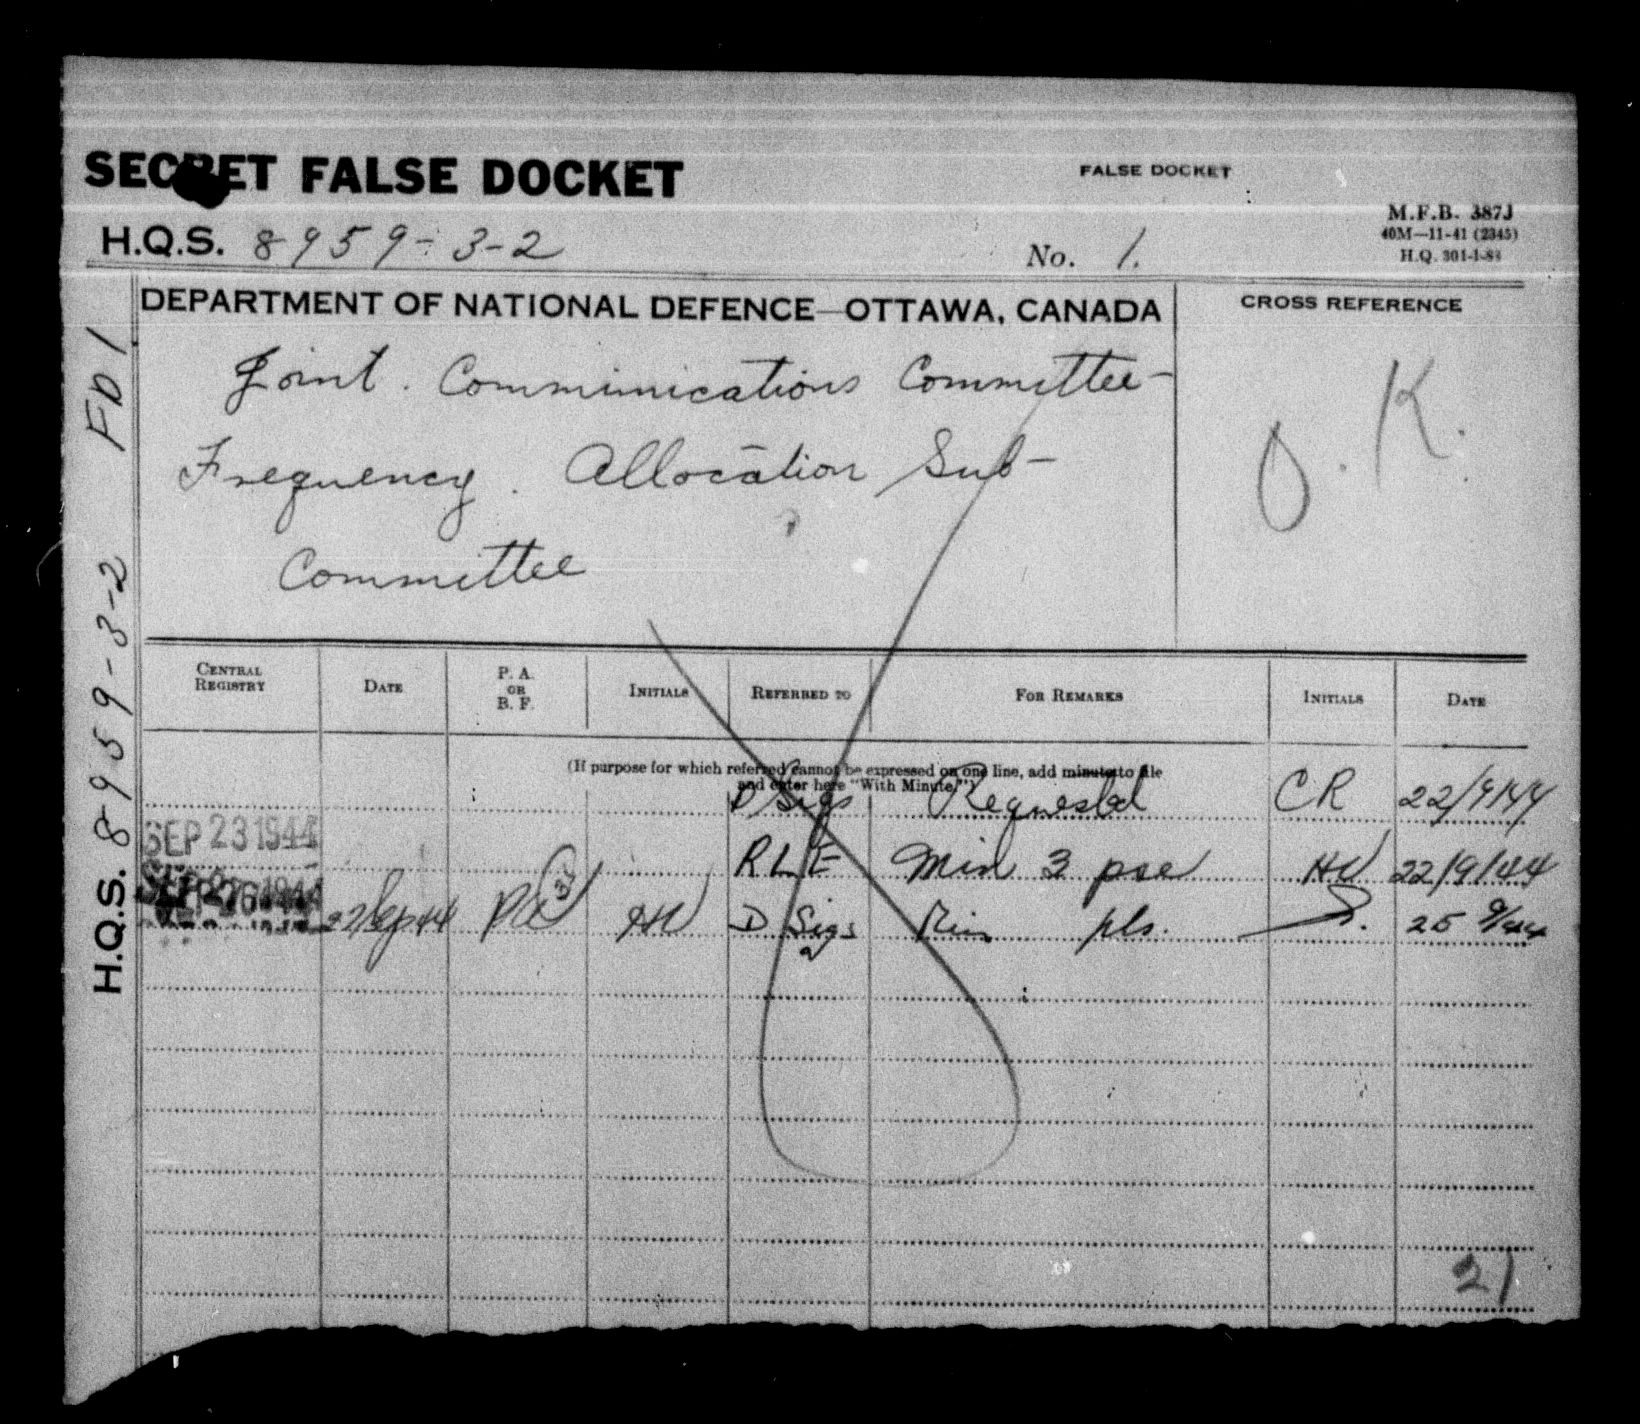 SECRET FALSE DOCKET
FALSE DOCKET
M.F.B. 387J
40M—11-41 (2345)
H.Q. 301-1-8
H.Q.S. 8959-3-2
No. 1.
DEPARTMENT OF NATIONAL DEFENCE—OTTAWA, CANADA
CROSS REFERENCE
Joint Communications Committee-
Frequency Allocation Sub-
Committee
O.K.
H.Q.S. 8959-3-2 FD 1
CENTRAL REGISTRY
DATE
P. A. OR B. F.
INITIALS
REFERRED TO
FOR REMARKS
INITIALS
DATE
(If purpose for which referred cannot be expressed on one line, add minute to file
and enter here "With Minute.")
D Sigs Requested CR 22/9/44
SEP 23 1944
R L E Min 3 pse HW 22/9/44
SEP 26 1944
22 Sep 44 PA HW D Sigs Min pls. 25 9/44
21